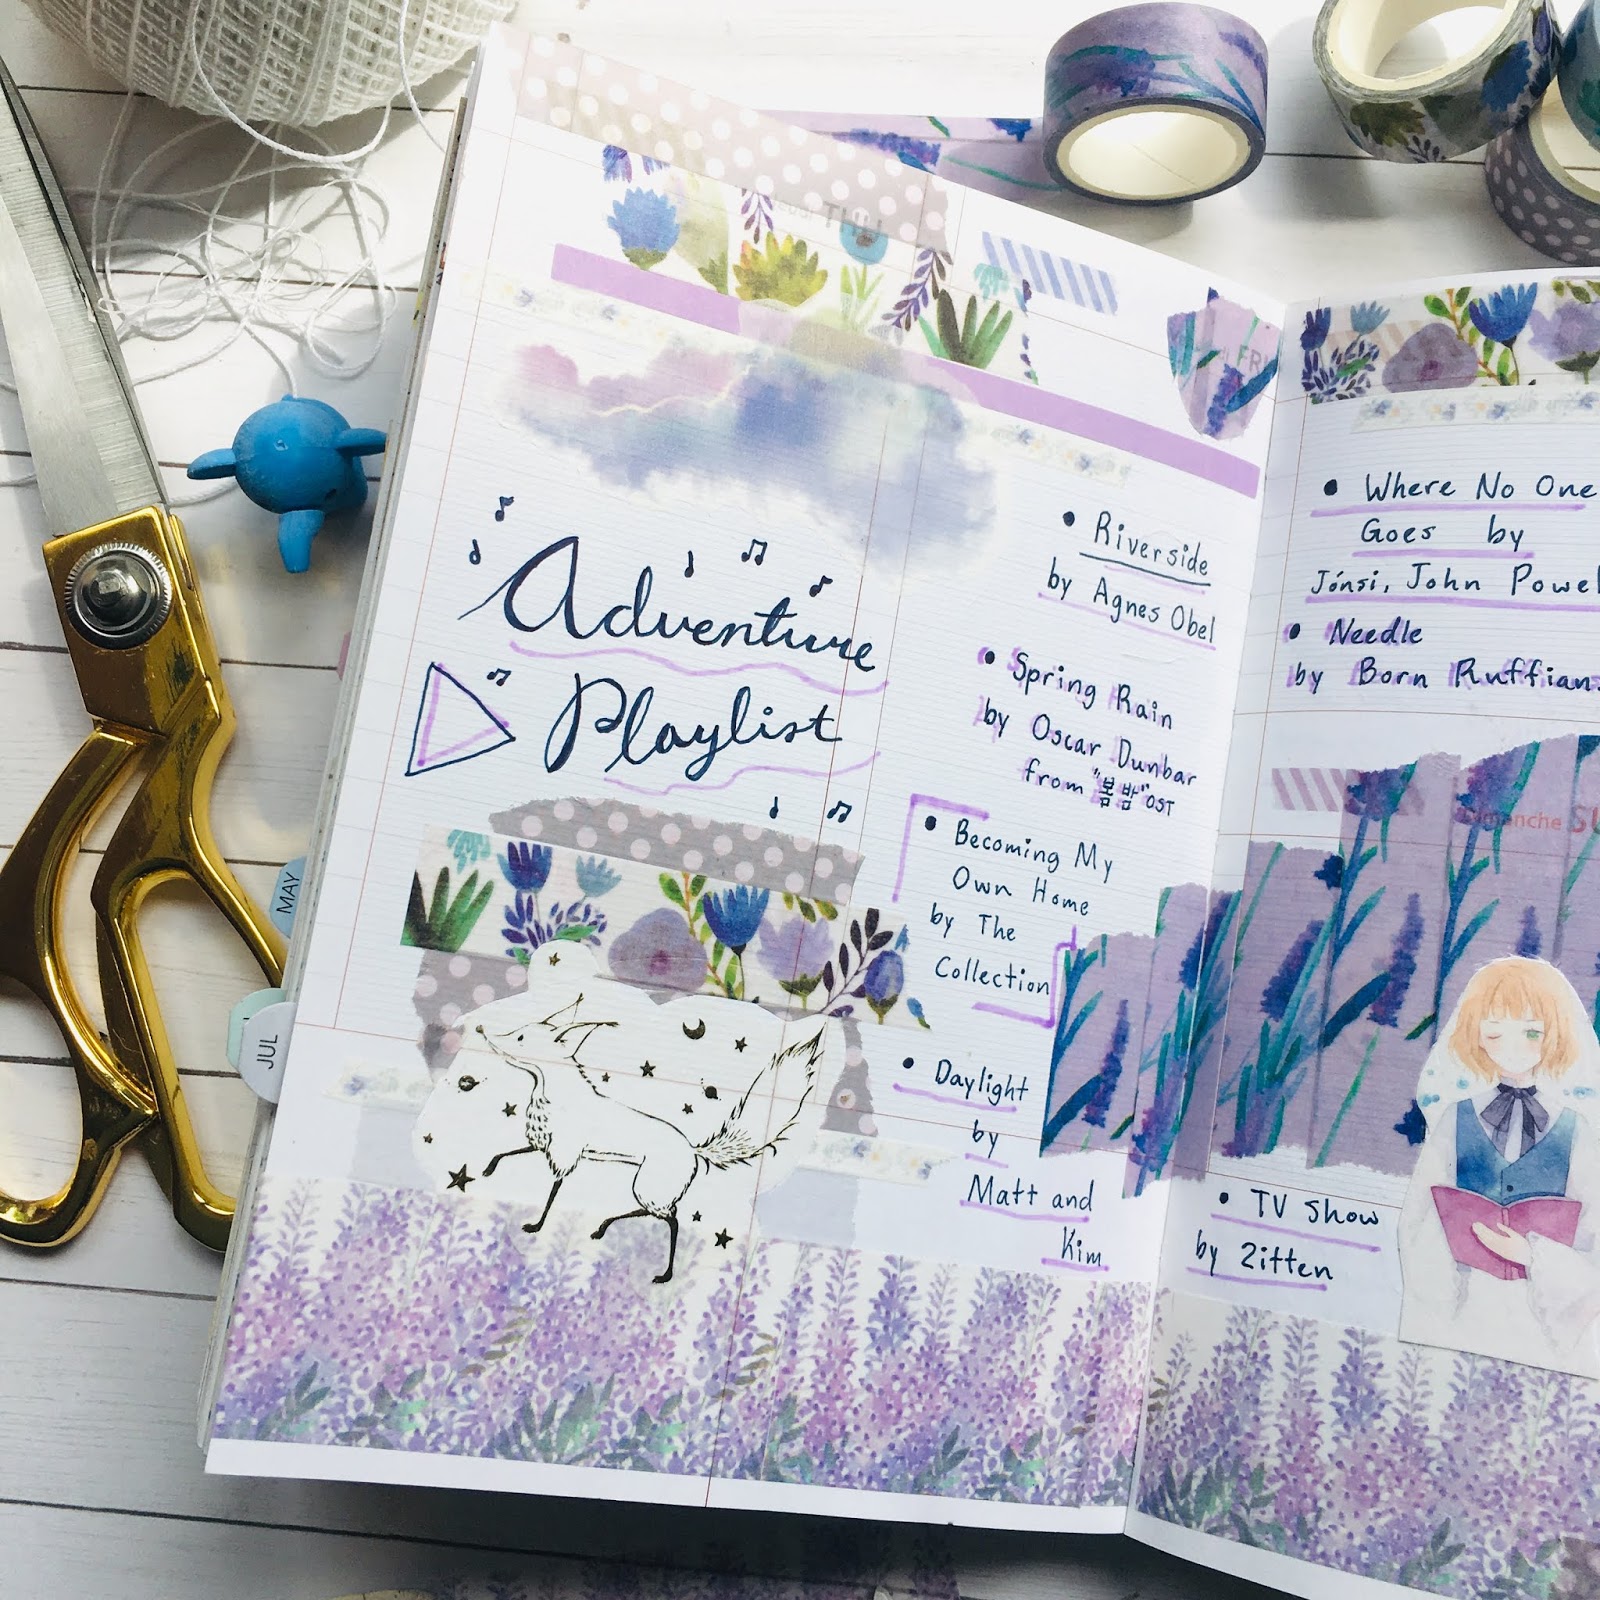 THU
FRI
Adventure
Playlist
• Riverside
by Agnes Obel
• Spring Rain
by Oscar Dunbar
from "봄밤" OST
• Becoming My
Own Home
by The
Collection
• Daylight
by
Matt and
Kim
• Where No One
Goes by
Jónsi, John Powel
• Needle
by Born Ruffians
manche SU
• TV Show
by Zitten
MAY
JUL